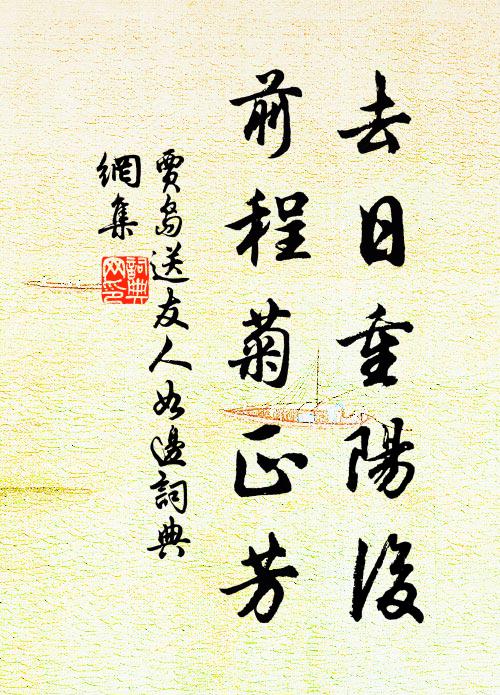 去日重陽後
前程菊正芳
賈島送友人如邊詞典
網集
詞典網印